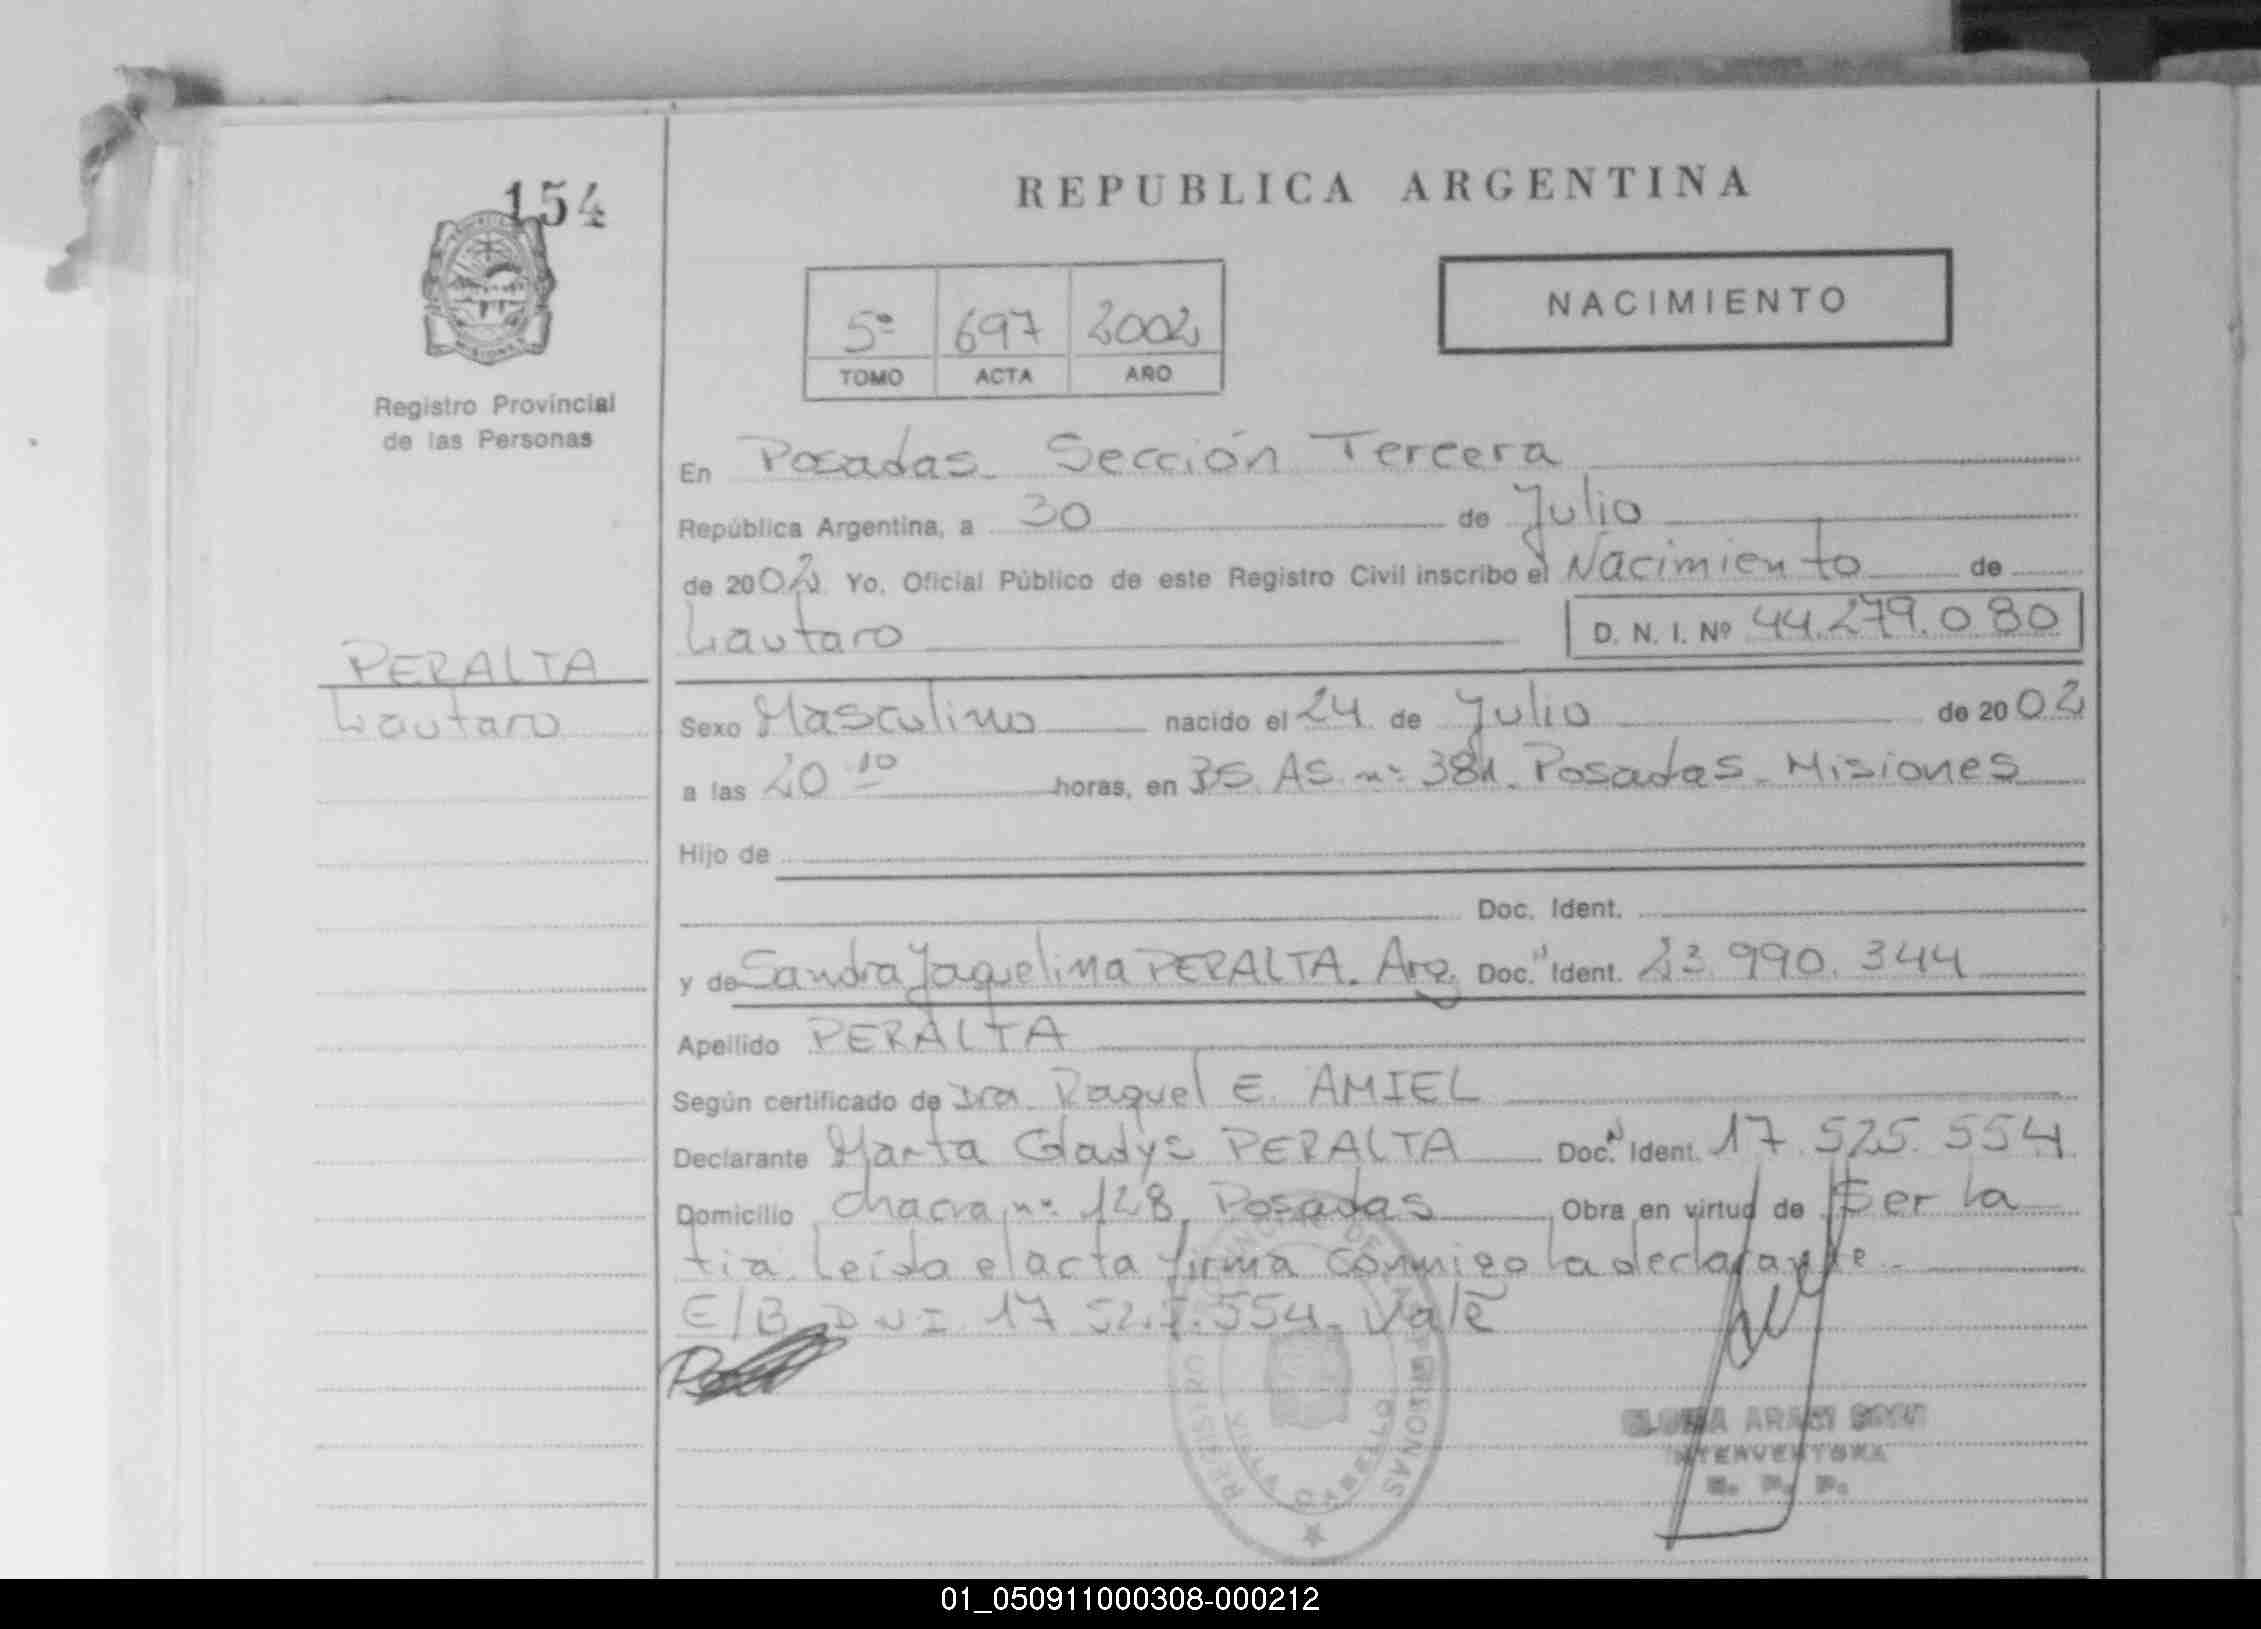 154
REPUBLICA ARGENTINA
NACIMIENTO
5º 697 2002
TOMO ACTA AÑO
Registro Provincial
de las Personas
En Posadas Sección Tercera
República Argentina, a 30 de Julio
de 2002 Yo, Oficial Público de este Registro Civil inscribo el Nacimiento de
Lautaro D. N. I. Nº 44.279.080
PERALTA
Lautaro
Sexo Masculino nacido el 24 de Julio de 2002
a las 20 10 horas, en BS. AS. nº 381. Posadas - Misiones
Hijo de
Doc. Ident.
y de Sandra Jaquelina PERALTA. Arg. Doc. Ident. 23.990.344
Apellido PERALTA
Según certificado de Dra. Raquel E. AMIEL
Declarante Marta Gladys PERALTA Doc. Ident. 17.525.554
Domicilio chacra nº 128, Posadas Obra en virtud de Ser la
tia. Leída el acta firma conmigo la declarante.
E/B DNI 17 525.554. Vale
INTERVENTORA
REGISTRO PERSONAS
VILLA CABELLO
01_050911000308-000212